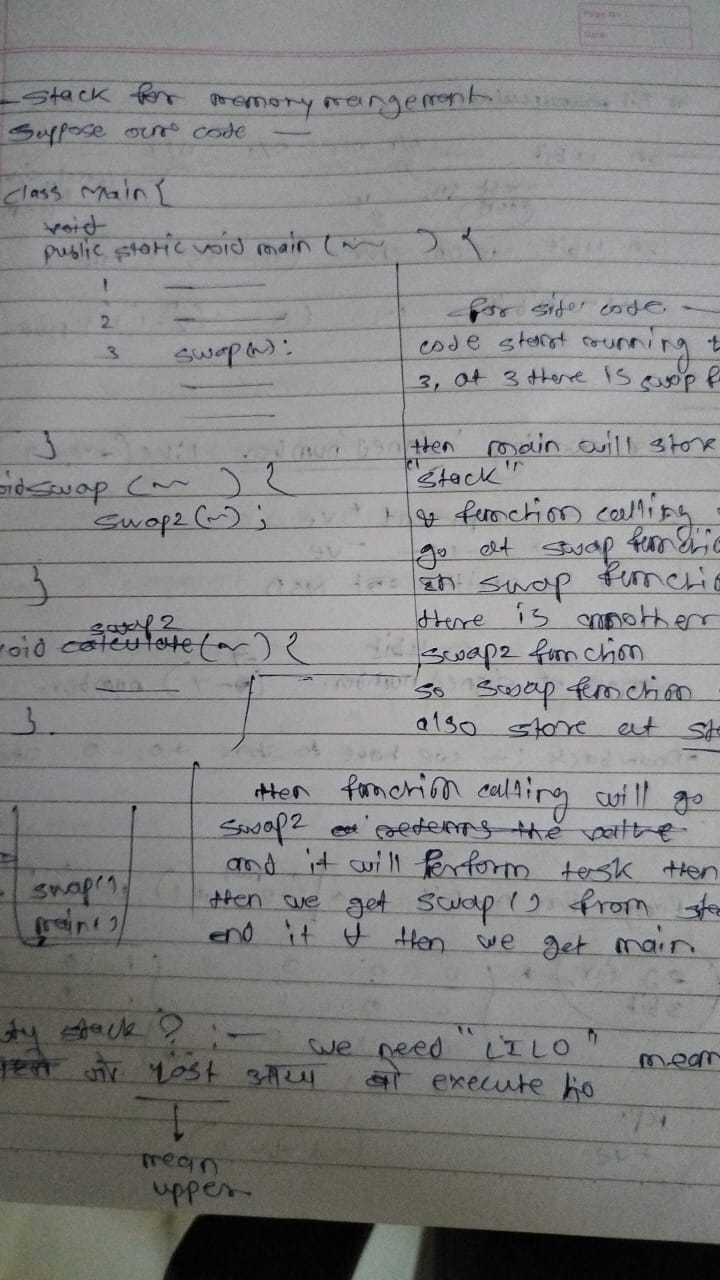 Page No.
Date
Stack for memory mangement
Suppose our code —
class Main {
void
public static void main ( ) {
1
2
3 swap(~);
}
for side code —
code start running t
3, at 3 there is swap f
then main will store
"Stack"
& function calling
go at swap functio
in swap functio
there is another
swap2 function
so swap function
also store at sta
oid swap (~ ) {
swap2(~);
}
swap2
oid calculate (~) {
}.
then function calling will go
swap2 returns the value
and it will perform task then
then we get swap() from sta
end it & then we get main.
swap()
main()
hy stack ? :— we need "LILO" mean
जो लास्ट आया वो execute हो
mean
upper